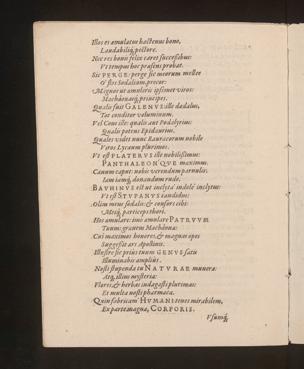 Illos es amulatus hactenus bono,
Laudabiliq; pectore.
Nec res bonis felix caret successibus:
Vt tempus hoc præsens probat.
Sic PERGE: perge sic meorum mellee
& flos Sodalium, precor:
Magnos ut amuleris ipsemet viros:
Machäonaeq; principes.
Qualis fuit GALENVS ille dædalus,
Tot conditor voluminum.
Vel Cous ille: qualis aut Podalyrius:
Qualis potens Epidaurius.
Quales videt nunc Rauracorum nobile
Viros Lycæum plurimos.
Vt est PLATERVS ille nobilissimus:
PANTHALEON'QVE maximus.
Canum caput: nobis verendum parvulis:
Iam iamq; donandum rude.
BAVHINVS est ut inclyta indolé inclytus:
Vt est STVPANVS candidus:
Olim meus sodalis: & consors cibi:
Mensæq; particeps thori.
Hos amulare: imò amulare PATRVVM
Tuum: gravem Machäona:
Cui maximos honores, & magnas opes
Suggessit ars Apollinis.
Illustre sic prius tuum GENVS satu
Illuminabis ampliùs.
Nosti stupenda tu NATVRÆ munera:
Atq; illius mysteria:
Flores, & herbas indagasti plurimas:
Et multa nosti pharmaca.
Quin fabricam HVMANI tenes mirabilem,
Ex parte magna, CORPORIS.
Vsumq;